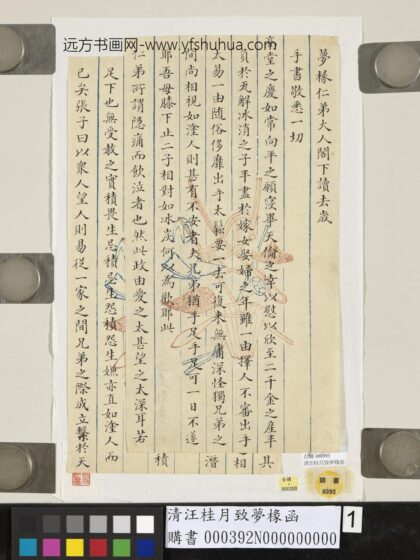 远方书画网-www.yfshuhua.com
夢椽仁弟大人閣下讀去歲
手書敬悉一切
萱堂之慶如常向平之願寖畢天倫之幸以慰以欣至二千金之產半
負於瓦解冰消之子半盡於嫁女娶婦之年雖一由擇人不審出手
太易一由隨俗侈靡出手太鬆要一去可復來無庸深怪獨兄弟之
間尚相視如塗人則甚有不安者夫兄弟猶手足手足可一日不遂
耶吾母膝下止二子相對如冰炭何以為歡耶此
仁弟所謂隱痛而飲泣者也然此政由愛之太甚望之太深耳若
足下也無受教之實積畏生忌積忌生怨積怨生嫌亦直如塗人而
已矣張子曰以衆人望人則易從一家之間兄弟之際成立繫於天
其
相
潛
積
清汪桂月致夢椽函
購書
0392
000393
清汪桂月致夢椽函
購書 000392N000000000
1